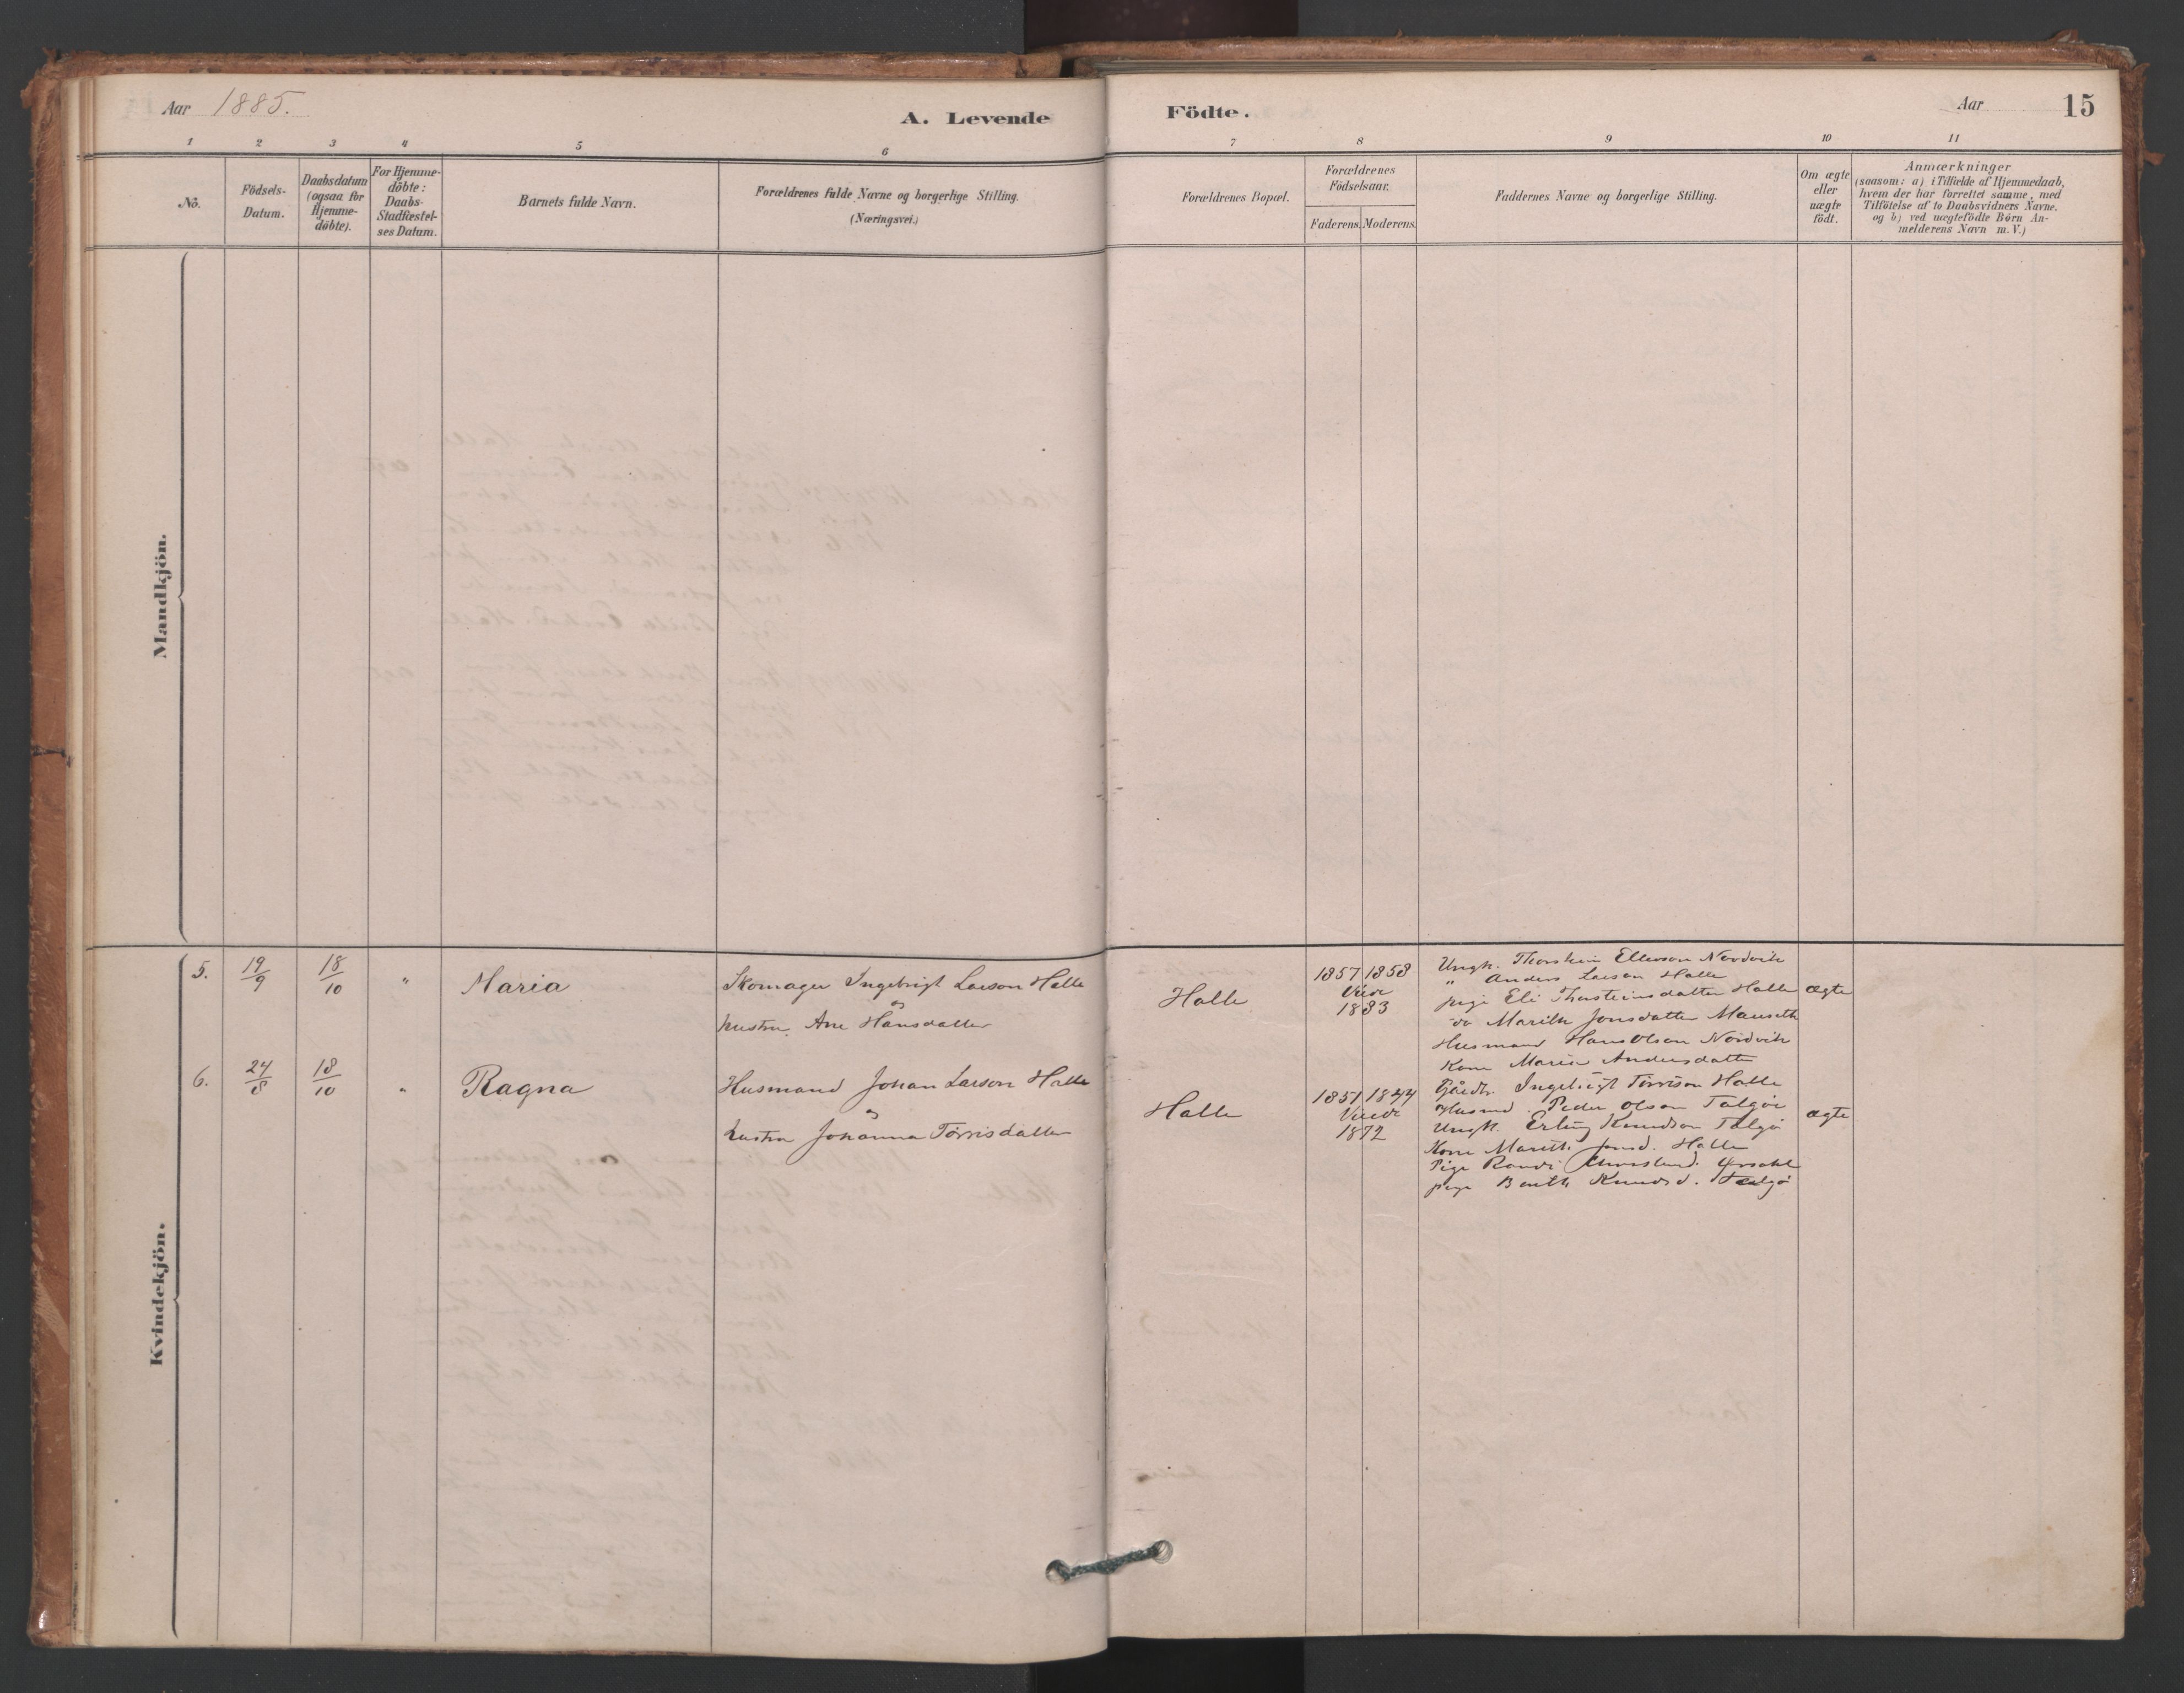 Aar 1885.
A. Levende Födte.
Aar
15
1 2 3 4 5 6 7 8 9 10 11
No.
Födsels-
Datum.
Daabsdatum
(ogsaa for
Hjemme-
döbte).
For Hjemme-
döbte:
Daabs-
Stadfæstel-
ses Datum.
Barnets fulde Navn.
Forældrenes fulde Navne og borgerlige Stilling.
(Næringsvei.)
Forældrenes Bopæl.
Forældrenes
Födselsaar.
Faderens. Moderens.
Faddernes Navne og borgerlige Stilling.
Om ægte
eller
uægte
födt.
Anmærkninger
(saasom: a) i Tilfælde af Hjemmedaab,
hvem der har forrettet samme, med
Tilföielse af to Daabsvidners Navne.
og b) ved uægtefödte Börn An-
melderens Navn m. V.)
Mandkjön.
Kvindekjön.
5. 19/9 18/10 " Maria
Skomager Ingebrigt Larson Halle
og
hustru Ane Hansdatter
Halle
1857 1858
Viede
1883
Ungk. Thorstein Ellevson Nordvik
" Anders Larson Halle
pige Eli Thorsteinsdatter Halle
do Marith Jonsdatter Mauseth
Husmand Hans Olson Nordvik
Kone Maria Andersdatter
ægte
6. 24/8 18/10 " Ragna
Husmand Johan Larson Halle
og
hustru Johanna Tørrisdatter
Halle
1851 1844
Viede
1872
Gårdbr. Ingebrigt Tørrison Halle
Husmd. Peder Olson Talgøe
Ungk. Erling Knudson Talgø
Kone Marith Jonsd. Halle
Pige Randi
pige Berith Knudsd. Talgø
ægte